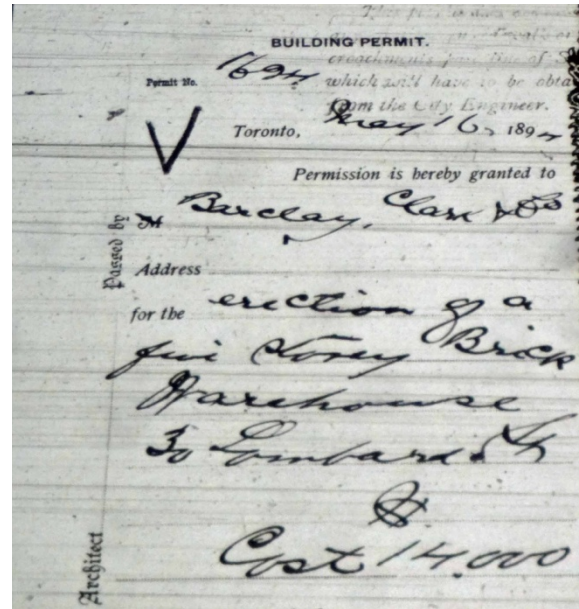 BUILDING PERMIT.
Permit No. 1694
which will have to be obta
from the City Engineer.
Toronto, May 16, 189
Permission is hereby granted to
Passed by
M Barclay, Clark & Co
Address
for the erection of a
five Storey Brick
Warehouse
30 Lombard St
$
Cost 14,000
Architect